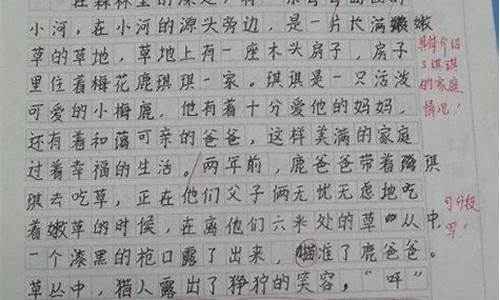 在森林里的深处，有
小河，在小河的源头旁边，是一片长满嫩嫩
草的草地，草地上有一座木头房子，房子
里住着梅花鹿琪琪一家。琪琪是一只活泼
可爱的小梅鹿，他有着十分爱他的妈妈，
还有着和蔼可亲的爸爸，这样美满的家庭
过着幸福的生活。两年前，鹿爸爸带着琪
琪去吃草，正在他们父子俩无忧无虑地吃
着嫩草的时候，在离他们六米处的草丛中，
一个漆黑的枪口露了出来，瞄准了鹿爸爸。
草丛中，猎人露出了狰狞的笑容，“呯”
具体介绍
了琪琪
的家庭
情况！
可分段
写！